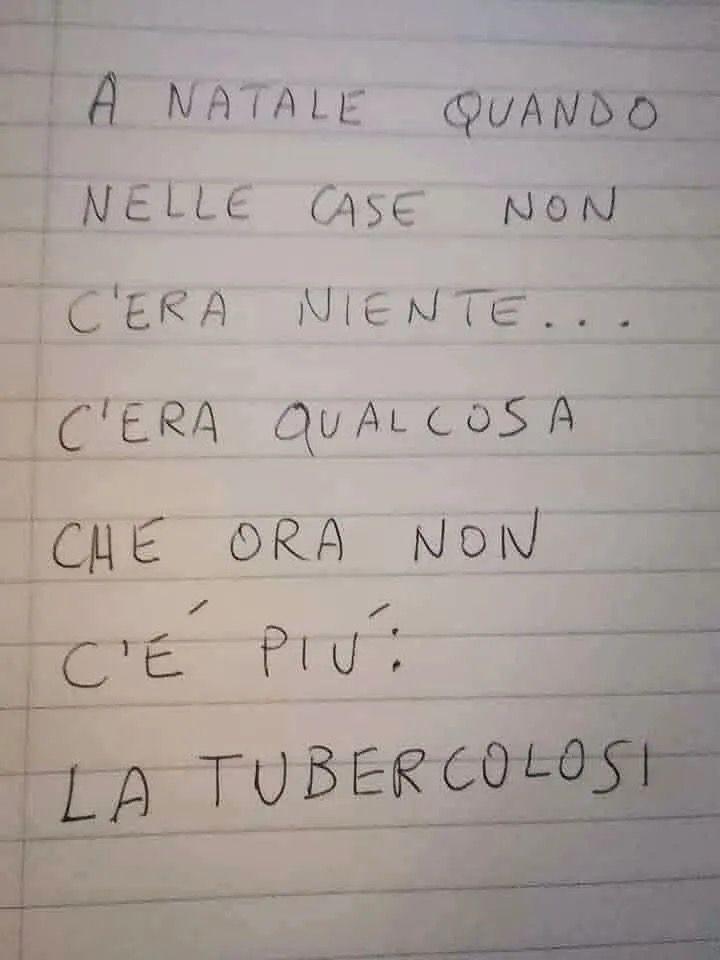 A NATALE QUANDO
NELLE CASE NON
C'ERA NIENTE...
C'ERA QUALCOSA
CHE ORA NON
C'É PIÚ:
LA TUBERCOLOSI